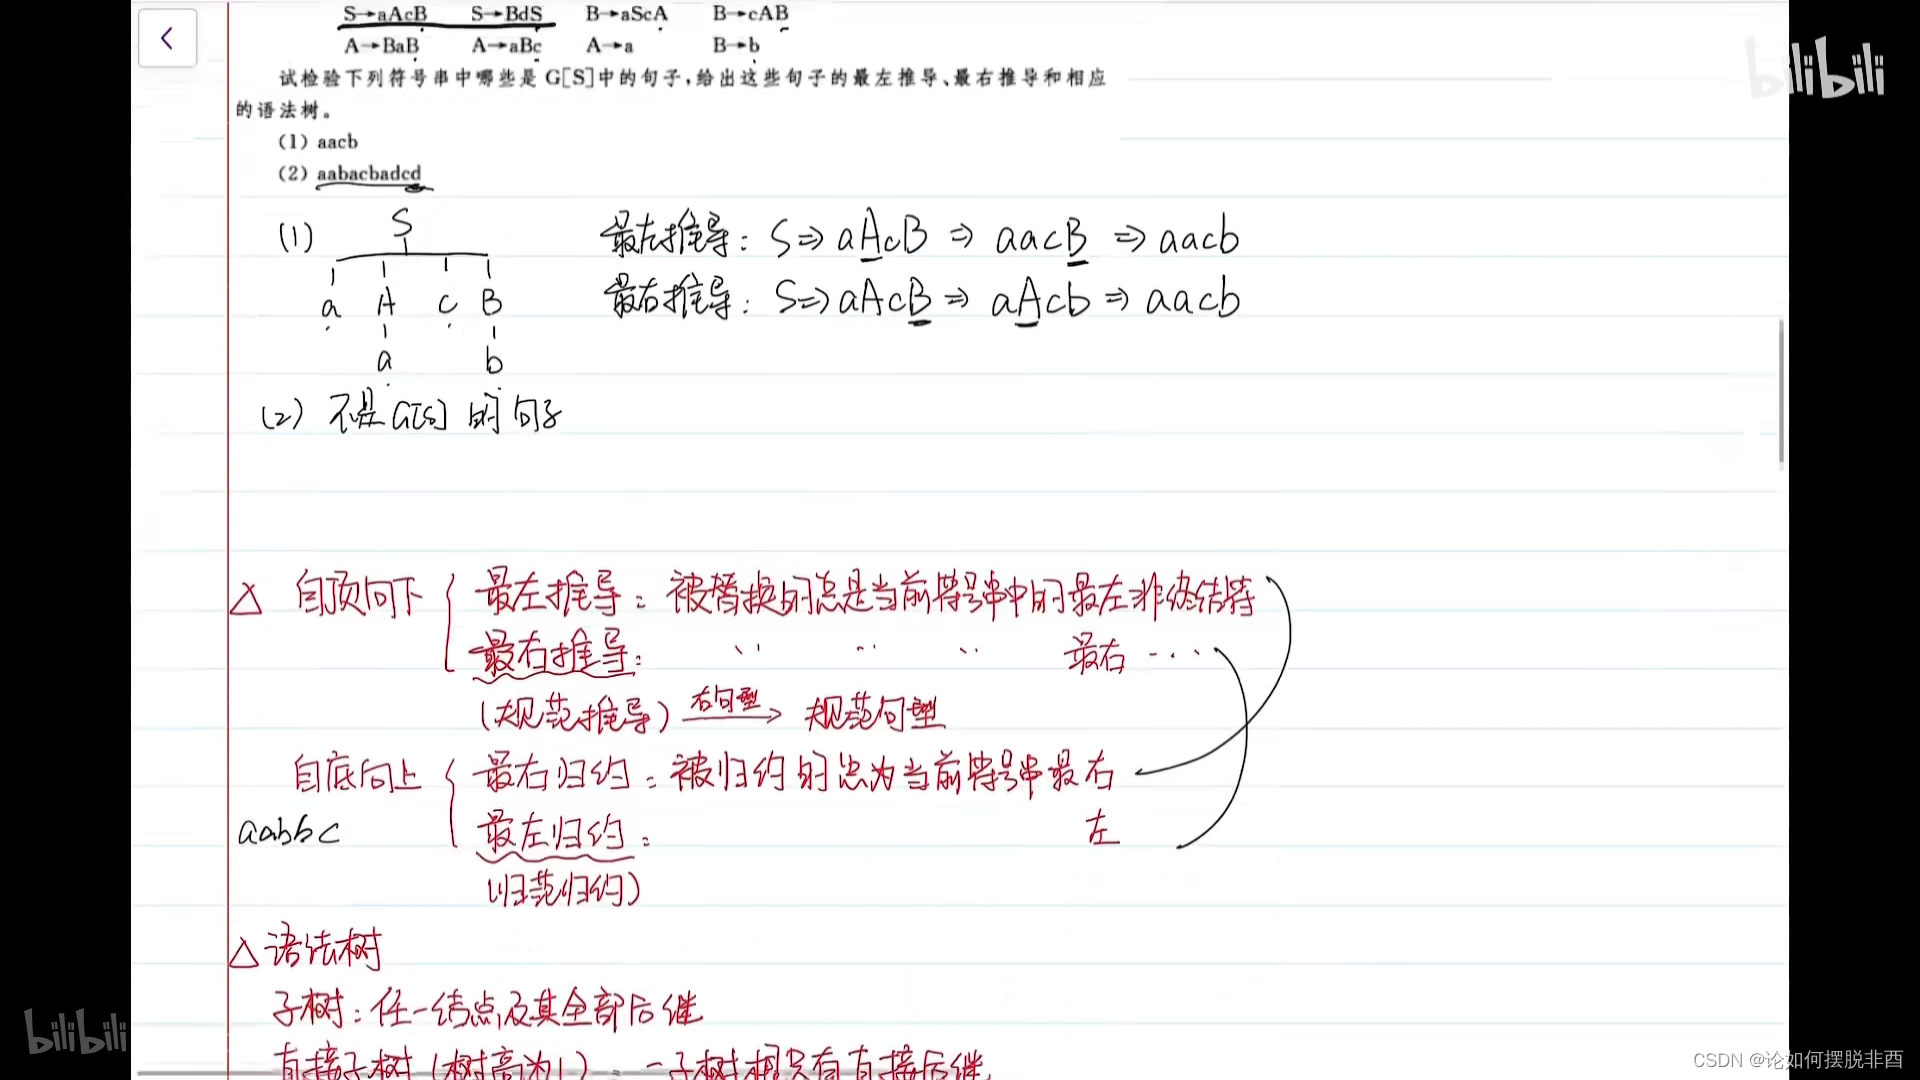 S→aAcB S→BdS B→aScA B→cAB
A→BaB A→aBc A→a B→b
试检验下列符号串中哪些是 G[S]中的句子,给出这些句子的最左推导、最右推导和相应
的语法树。
(1) aacb
(2) aabacbadcd
(1) S
a A c B
a b
最左推导: S⇒aAcB ⇒ aacB ⇒ aacb
最右推导: S⇒aAcB ⇒ aAcb ⇒ aacb
(2) 不是G[S]的句子
△ 自顶向下 { 最左推导: 被替换的总是当前符号串中的最左非终结符
最右推导: 最右 ····
(规范推导) 右句型→ 规范句型
自底向上 { 最右归约: 被归约的总为当前符号串最右
aabbc 最左归约: 左
(归范归约)
△ 语法树
子树: 任一结点及其全部后继
直接子树 (树高为1): 一子树根只有直接后继
bilibili
bilibili
CSDN @论如何摆脱非酉